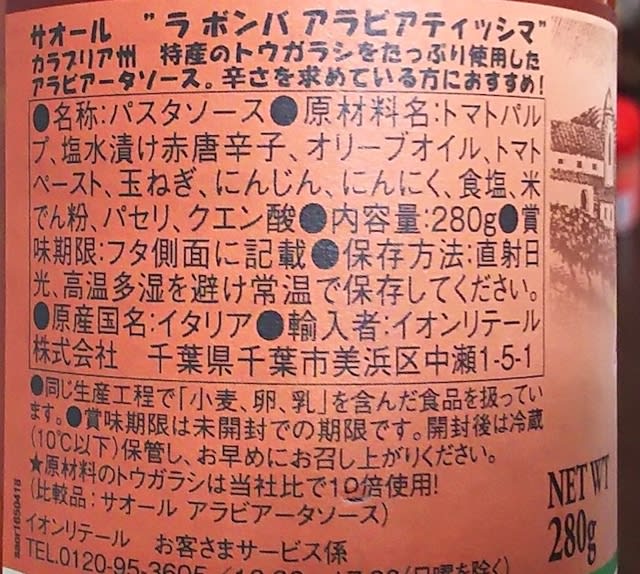 サオール "ラ ボンバ アラビアティッシマ"
カラブリア州 特産のトウガラシをたっぷり使用した
アラビアータソース。辛さを求めている方におすすめ!
●名称:パスタソース●原材料名:トマトパル
プ、塩水漬け赤唐辛子、オリーブオイル、トマト
ペースト、玉ねぎ、にんじん、にんにく、食塩、米
でん粉、パセリ、クエン酸●内容量:280g●賞
味期限:フタ側面に記載●保存方法:直射日
光、高温多湿を避け常温で保存してください。
●原産国名:イタリア●輸入者:イオンリテール
株式会社 千葉県千葉市美浜区中瀬1-5-1
●同じ生産工程で「小麦、卵、乳」を含んだ食品を扱ってい
ます。●賞味期限は未開封での期限です。開封後は冷蔵
(10℃以下)保管し、お早めにお召し上がりください。
★原材料のトウガラシは当社比で10倍使用!
(比較品:サオール アラビアータソース)
イオンリテール お客さまサービス係
TEL.0120-95-3605
saor1650418
NET WT
280g